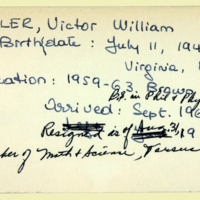 LER, Victor William
Birthdate : July 11, 194
Virginia,
cation : 1959-63 Brown
B.S. in Phil & Phy
Arrived: Sept. 196
Resigned as of Aug. 31, 19
ber of Math & Science, Tarsus